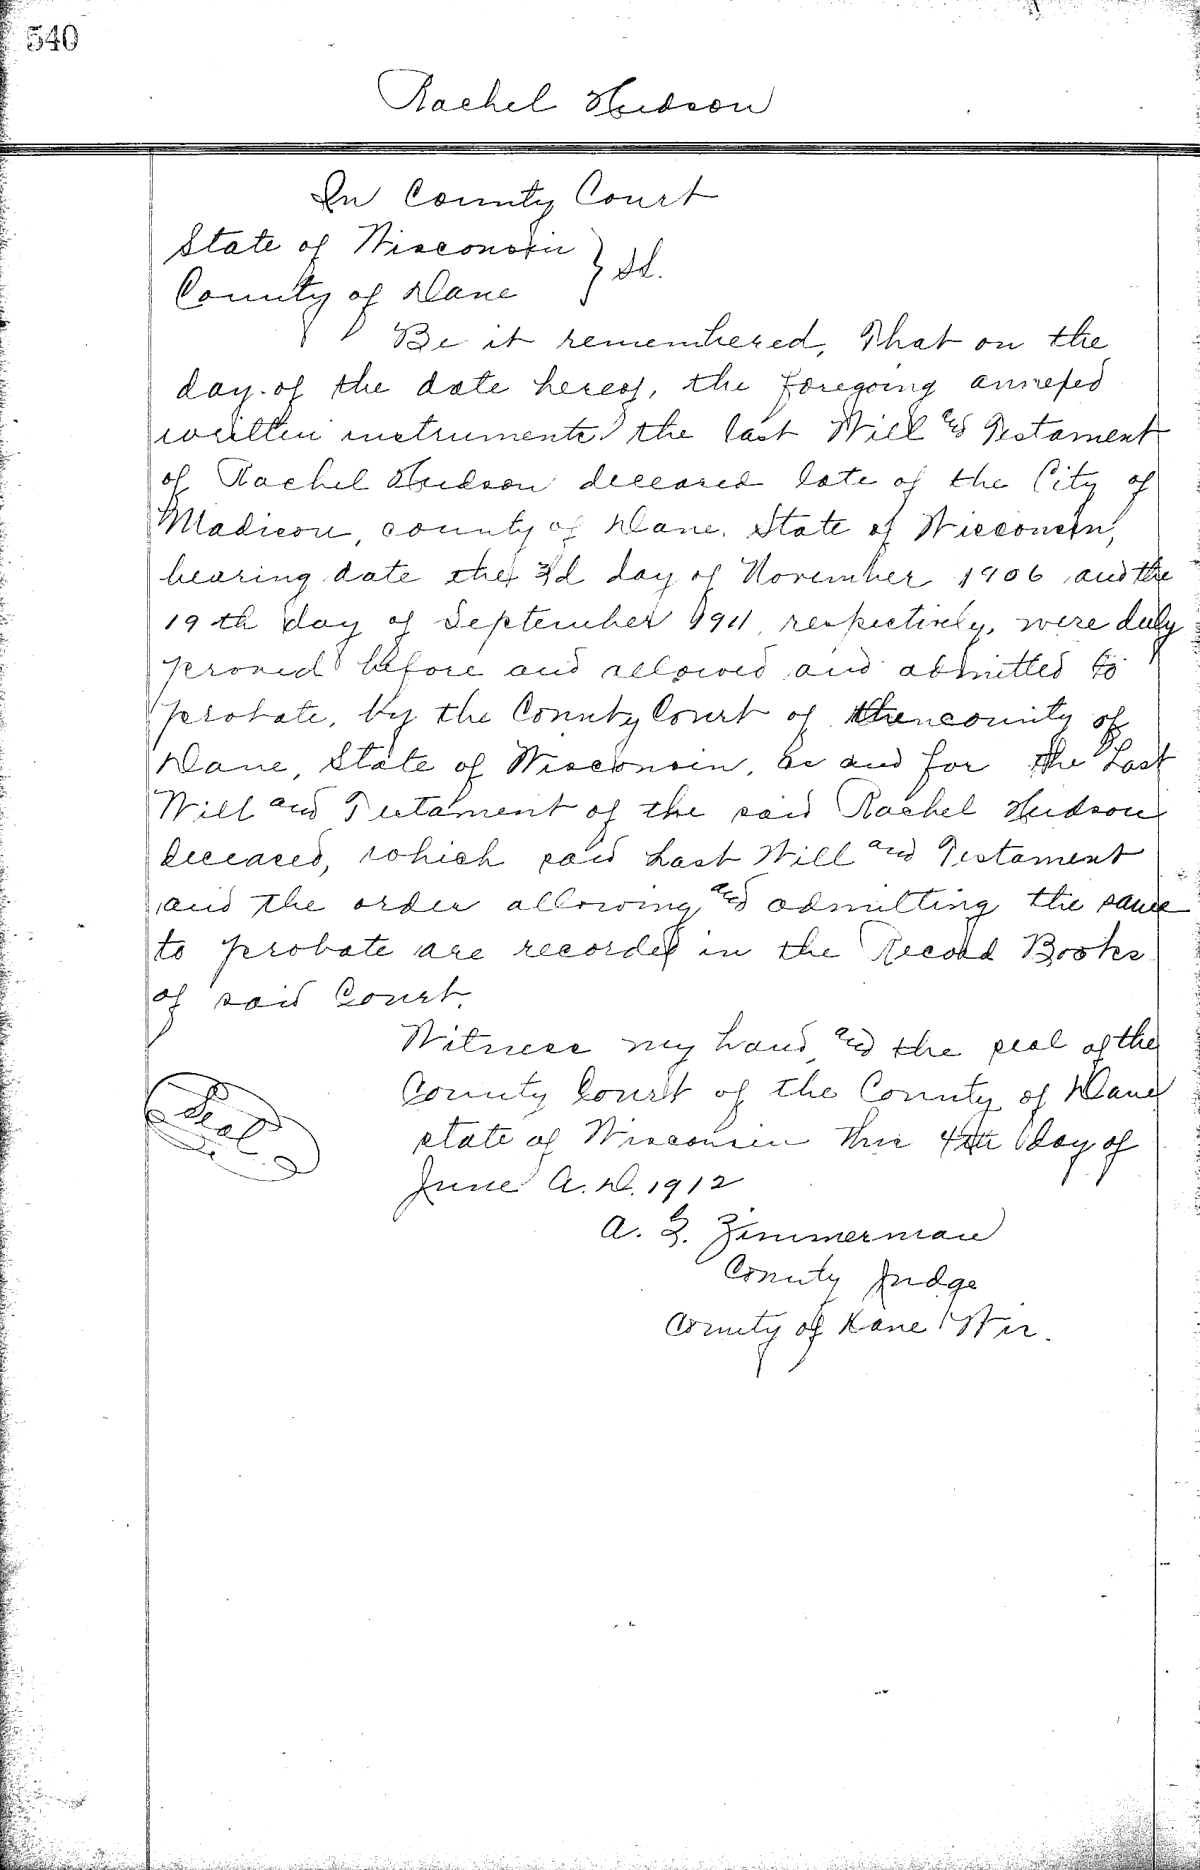 540
Rachel Hudson
In County Court
State of Wisconsin } SS.
County of Dane
Be it remembered, That on the
day of the date hereof, the foregoing annexed
written instruments the last Will and Testament
of Rachel Hudson deceased late of the City of
Madison, county of Dane, State of Wisconsin,
bearing date the 3d day of November 1906 and the
19th day of September 1911 respectively, were duly
proved before and allowed and admitted to
probate, by the County Court of county of
Dane, State of Wisconsin, as and for the Last
Will and Testament of the said Rachel Hudson
deceased, which said Last Will and Testament
and the order allowing and admitting the same
to probate are recorded in the Record Books
of said Court.
Witness my hand and the seal of the
County Court of the County of Dane
Seal
state of Wisconsin this 4th day of
June A.D. 1912
A. G. Zimmerman
County Judge
County of Dane Wis.